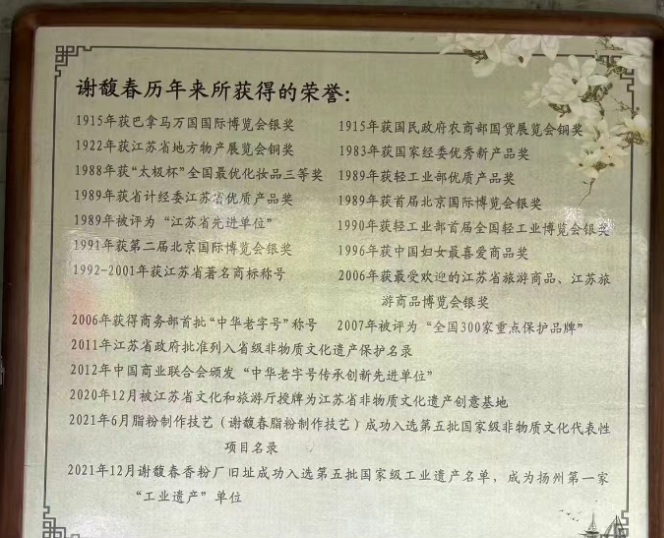 谢馥春历年来所获得的荣誉：
1915年获巴拿马万国国际博览会银奖
1915年获国民政府农商部国货展览会铜奖
1922年获江苏省地方物产展览会铜奖
1983年获国家经委优秀新产品奖
1988年获“太极杯”全国最优化妆品三等奖
1989年获轻工业部优质产品奖
1989年获省计经委江苏省优质产品奖
1989年获首届北京国际博览会银奖
1989年被评为“江苏省先进单位”
1990年获轻工业部首届全国轻工业博览会银奖
1991年获第二届北京国际博览会银奖
1996年获中国妇女最喜爱商品奖
1992-2001年获江苏省著名商标称号
2006年获最受欢迎的江苏省旅游商品、江苏旅
游商品博览会银奖
2006年获得商务部首批“中华老字号”称号
2007年被评为“全国300家重点保护品牌”
2011年江苏省政府批准列入省级非物质文化遗产保护名录
2012年中国商业联合会颁发“中华老字号传承创新先进单位”
2020年12月被江苏省文化和旅游厅授牌为江苏省非物质文化遗产创意基地
2021年6月脂粉制作技艺（谢馥春脂粉制作技艺）成功入选第五批国家级非物质文化代表性
项目名录
2021年12月谢馥春香粉厂旧址成功入选第五批国家级工业遗产名单，成为扬州第一家
“工业遗产”单位